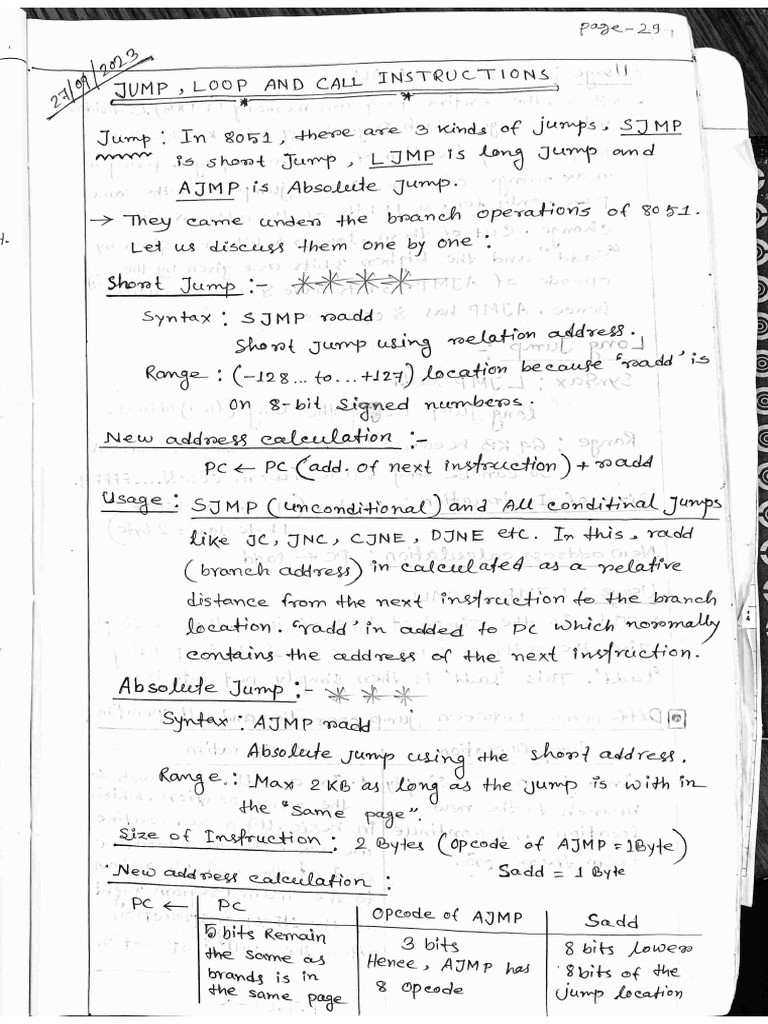 page-29
27/09/2023
JUMP, LOOP AND CALL INSTRUCTIONS
Jump : In 8051, there are 3 kinds of jumps, SJMP
is short Jump, LJMP is long Jump and
AJMP is Absolute Jump.
→ They came under the branch operations of 8051.
Let us discuss them one by one :
Short Jump :-
Syntax : SJMP radd
Short jump using relation address.
Range : (-128... to... +127) location because 'radd' is
on 8-bit signed numbers.
New address calculation :-
PC ← PC (add. of next instruction) + radd
Usage : SJMP (unconditional) and All conditinal Jumps
like JC, JNC, CJNE, DJNE etc. In this, radd
(branch address) in calculated as a relative
distance from the next instruction to the branch
location. 'radd' in added to PC which normally
contains the address of the next instruction.
Absolute Jump :-
Syntax : AJMP radd
Absolute jump using the short address.
Range : Max 2 KB as long as the jump is with in
the "same page".
Size of Instruction : 2 Bytes (opcode of AJMP = 1Byte)
Sadd = 1 Byte
New address calculation :
PC ← | PC | Opcode of AJMP | Sadd
5 bits Remain | 3 bits | 8 bits lower
the same as | Hence, AJMP has | 8 bits of the
brands is in | 8 opcode | jump location
the same page